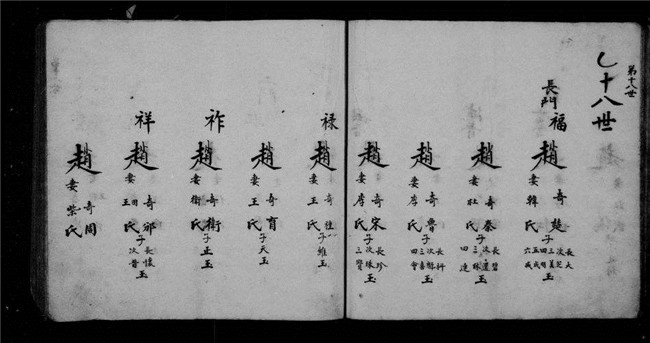 第十八世
乚十八世
長門
福
趙奇楚
妻韓氏
子
長大
次芝
三義
四明
五成
六成
玉
趙奇秦
妻杜氏
子
長碧
次蘆
三
四連
玉
趙奇魯
妻李氏
子
長科
次
三喜
四會
玉
趙奇宋
妻李氏
子
長珍
次珠
三寶
玉
禄
趙奇
妻王氏
子維玉
趙奇育
妻王氏
子天玉
祚
趙奇衛
妻衛氏
子正玉
祥
趙奇邠
妻田王氏
子
長懷
次晋
玉
趙奇周
妻柴氏